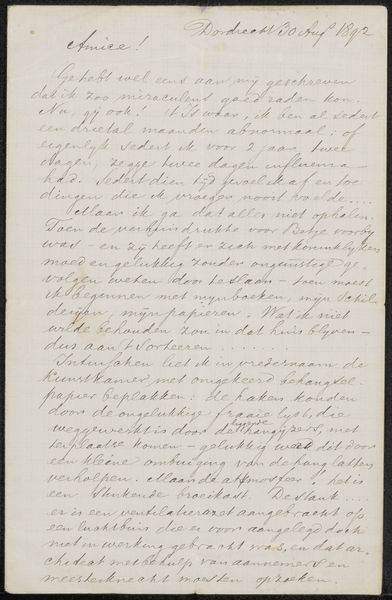 Dordrecht 30 Aug 1892
Amice!
Ge hebt wel eens aan mij geschreven
dat ik zoo miraculeus goed raden kon.
Nu, gij ook! 't Is waar, ik ben al sedert
een drietal maanden abnormaal: of
eigenlijk sedert ik voor 2 jaar, twee
dagen, zegge twee dagen influenza
had. Sedert dien tijd gevoel ik af en toe
dingen die ik vroeger nooit voelde....
Maar ik ga dat alles niet ophalen.
Toen de verhuisdrukte voor Betje voorbij
was - en zij heeft er zich met koninklijken
moed en gelukkig zonder ongunstige ge-
volgen weten door te slaan - toen moest
ik beginnen met mijn boeken, mijn schil-
derijen, mijn papieren. Wat ik niet
wilde behouden zou in dat huis blijven -
dus aan 't sorteeren.....
Intusschen liet ik in vredesnaam de
kunstkamer met omgekeerd behangsel-
papier beplakken: de haken konden
door de ongelukkige fraaie lijst, die
weggewerkt is door de hangijzers, niet
ter plaatse komen - gelukkig werd dit door
een kleine ombuiging van de hanglatten
verholpen. Maar de atmosfeer! het is
een stinkende broeikast. De stank....
er is een ventilatierozet aangebracht op
een luchtbuis die er voor aangelegd doch
niet in werking gebracht was, en dat ar-
chitect met behulp van aannemers en
meesterknecht moesten opzoeken.